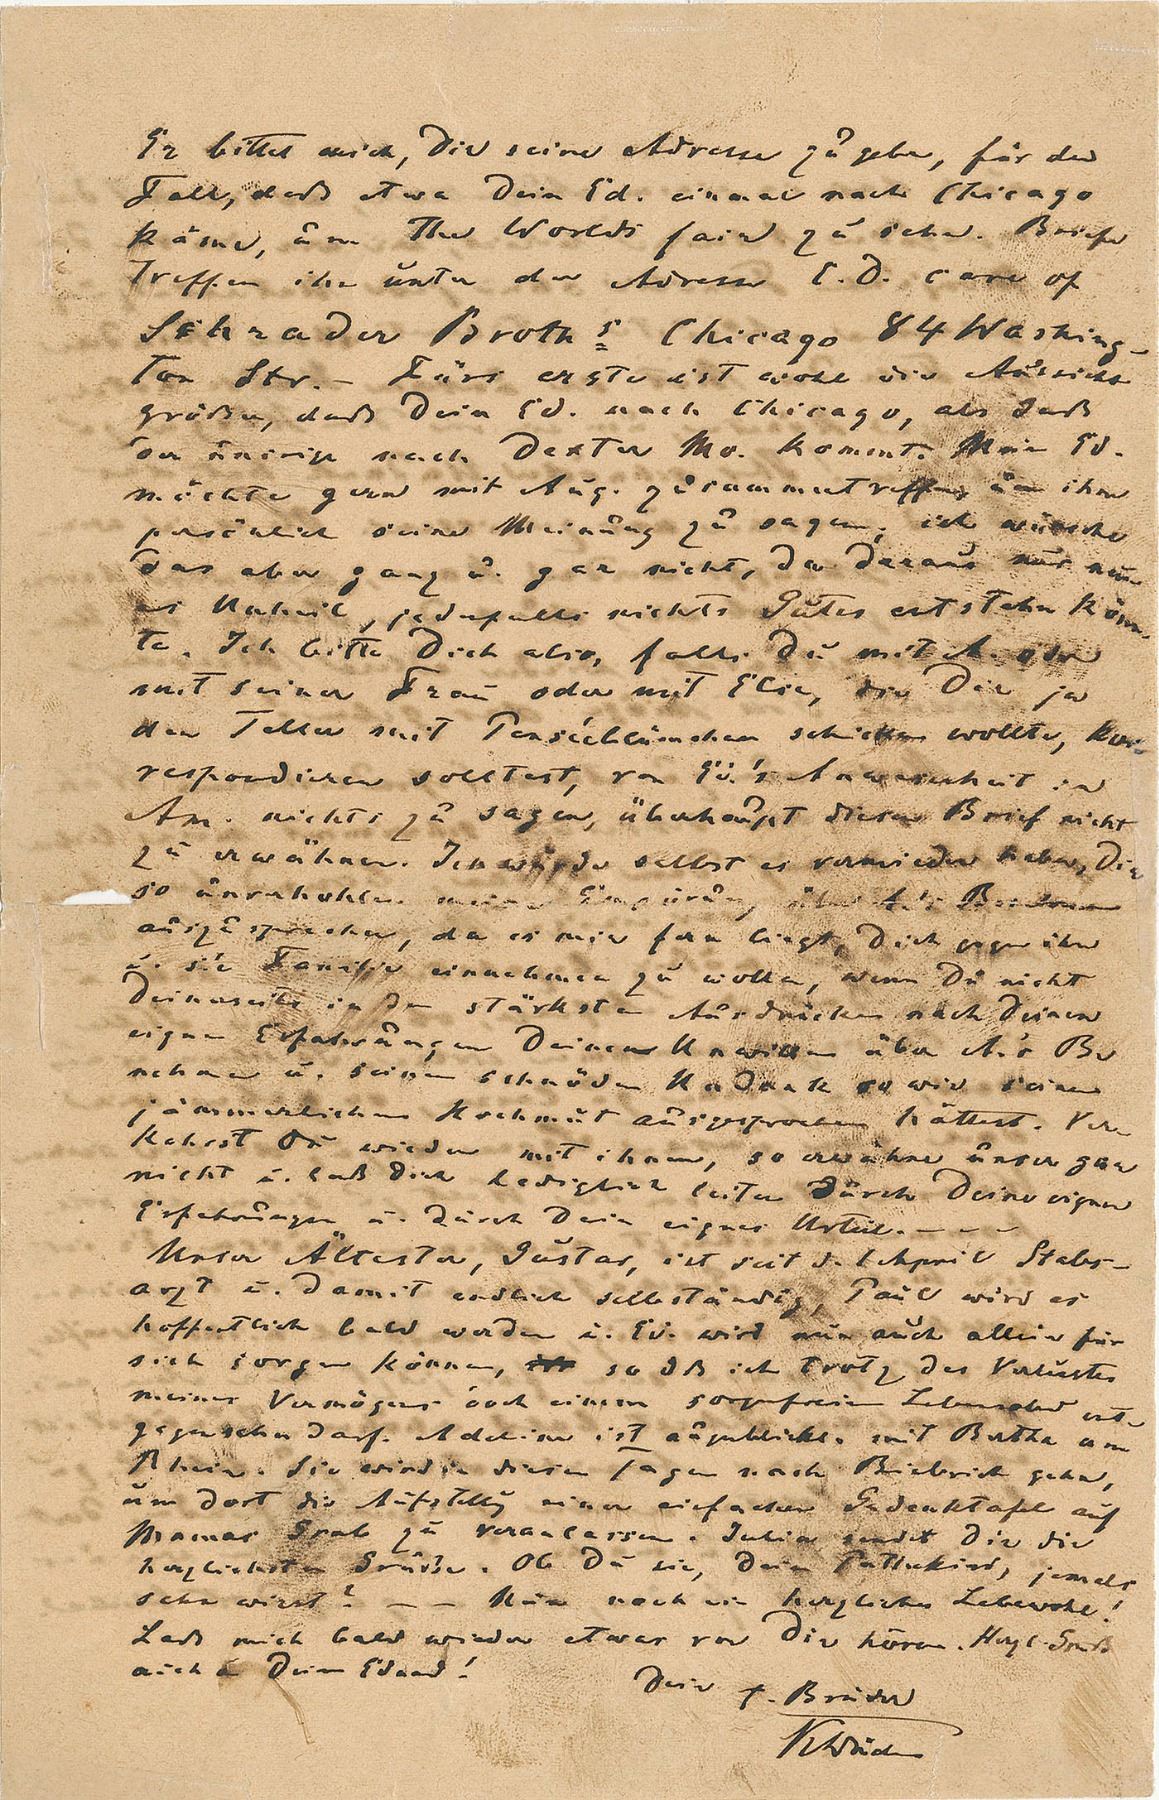 Er bittet mich, Dir seine Adresse zu geben, für den
Fall, daß etwa Dein Ed. einmal nach Chicago
käme, um The Worlds fair zu sehn. Briefe
treffen ihn unter der Adresse E. D. care of
Schrader Broth.s Chicago 84 Washing-
ton Str. – Fürs erste ist wohl die Aussicht
größer, daß Dein Ed. nach Chicago, als daß
der unsrige nach Dexter Mo. kommt. Mein Ed.
möchte gern mit Aug. zusammentreffen um ihm
persönlich seine Meinung zu sagen; ich wünsche
das aber ganz u. gar nicht, da daraus nur neu-
es Unheil, jedenfalls nichts Gutes entstehn könn-
te. Ich bitte Dich also, falls Du mit A. oder
mit seiner Frau oder mit Elise, die Dir ja
den Teller mit Penséeblümchen schicken wollte, kor-
respondieren solltest, von Ed.'s Anwesenheit in
Am. nichts zu sagen, überhaupt diesen Brief nicht
zu erwähnen. Ich würde selbst es vermieden haben, Dir
so unverhohlen meine Empörung über A.'s
auszusprechen, da es mir fern liegt, Dich gegen ihn
u. s/e Familie einnehmen zu wollen, wenn Du nicht
Deinerseits in den stärksten Ausdrücken nach Deinen
eignen Erfahrungen Deinen Unwillen über A.'s Be
nehmen u. seinen schnöden Undank sowie seinen
jämmerlichen Hochmut ausgesprochen hättest. Ver-
kehrst Du wieder mit ihnen, so erwähne unser gar
nicht u. laß Dich lediglich leiten durch Deine eignen
Erfahrungen u. durch Dein eignes Urteil. – – –
Unser Ältester, Gustav, ist seit d. 1 April Stabs-
arzt u. damit endlich selbständig, Paul wird es
hoffentlich bald werden u. Ed. wird nun auch allein für
sich sorgen können, so dß ich trotz des Verlustes
meines Vermögens doch einem sorgenfreien Lebensabend ent-
gegensehn darf. Adeline ist augenblickl. mit Bertha am
Rhein. Sie wird in diesen Tagen nach Biebrich gehn,
um dort die Aufstellg einer einfachen Gedenktafel auf
Mamas Grab zu veranlassen. Julia sendet Dir die
herzlichsten Grüße. Ob Du sie, Dein Pathekind, jemals
sehn wirst? – – – Nun noch ein herzliches Lebewohl!
Laß mich bald wieder etwas von Dir hören. Herzl. Gruß
auch an Deinen Eduard!
Dein tr. Bruder